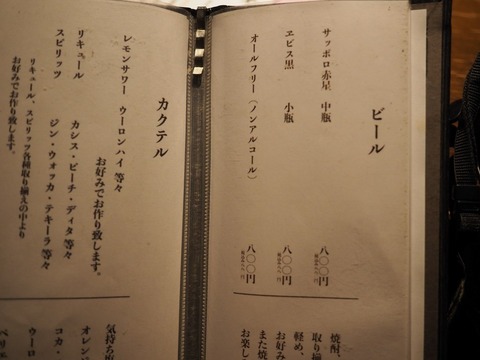 ビール
サッポロ赤星 中瓶 八〇〇円
ヱビス黒 小瓶 八〇〇円
オールフリー（ノンアルコール） 八〇〇円
焼酎
取り揃
軽め、
お好み
また焼
お楽し
カクテル
レモンサワー ウーロンハイ 等々
お好みでお作り致します。
リキュール カシス・ピーチ・ディタ 等々
スピリッツ ジン・ウォッカ・テキーラ 等々
リキュール、スピリッツ各種取り揃えの中より
お好みでお作り致します。
気持ち
オレン
コカ・
ウーロ
ペリエ